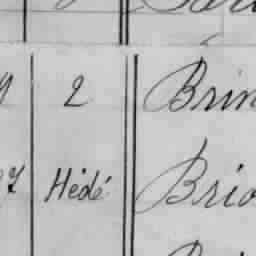 2 Brin
7 Hédé Brio